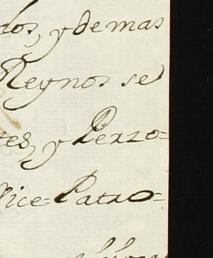 dos, y demas
Reynos se
tes, y Perzo=
Vice-Patro=